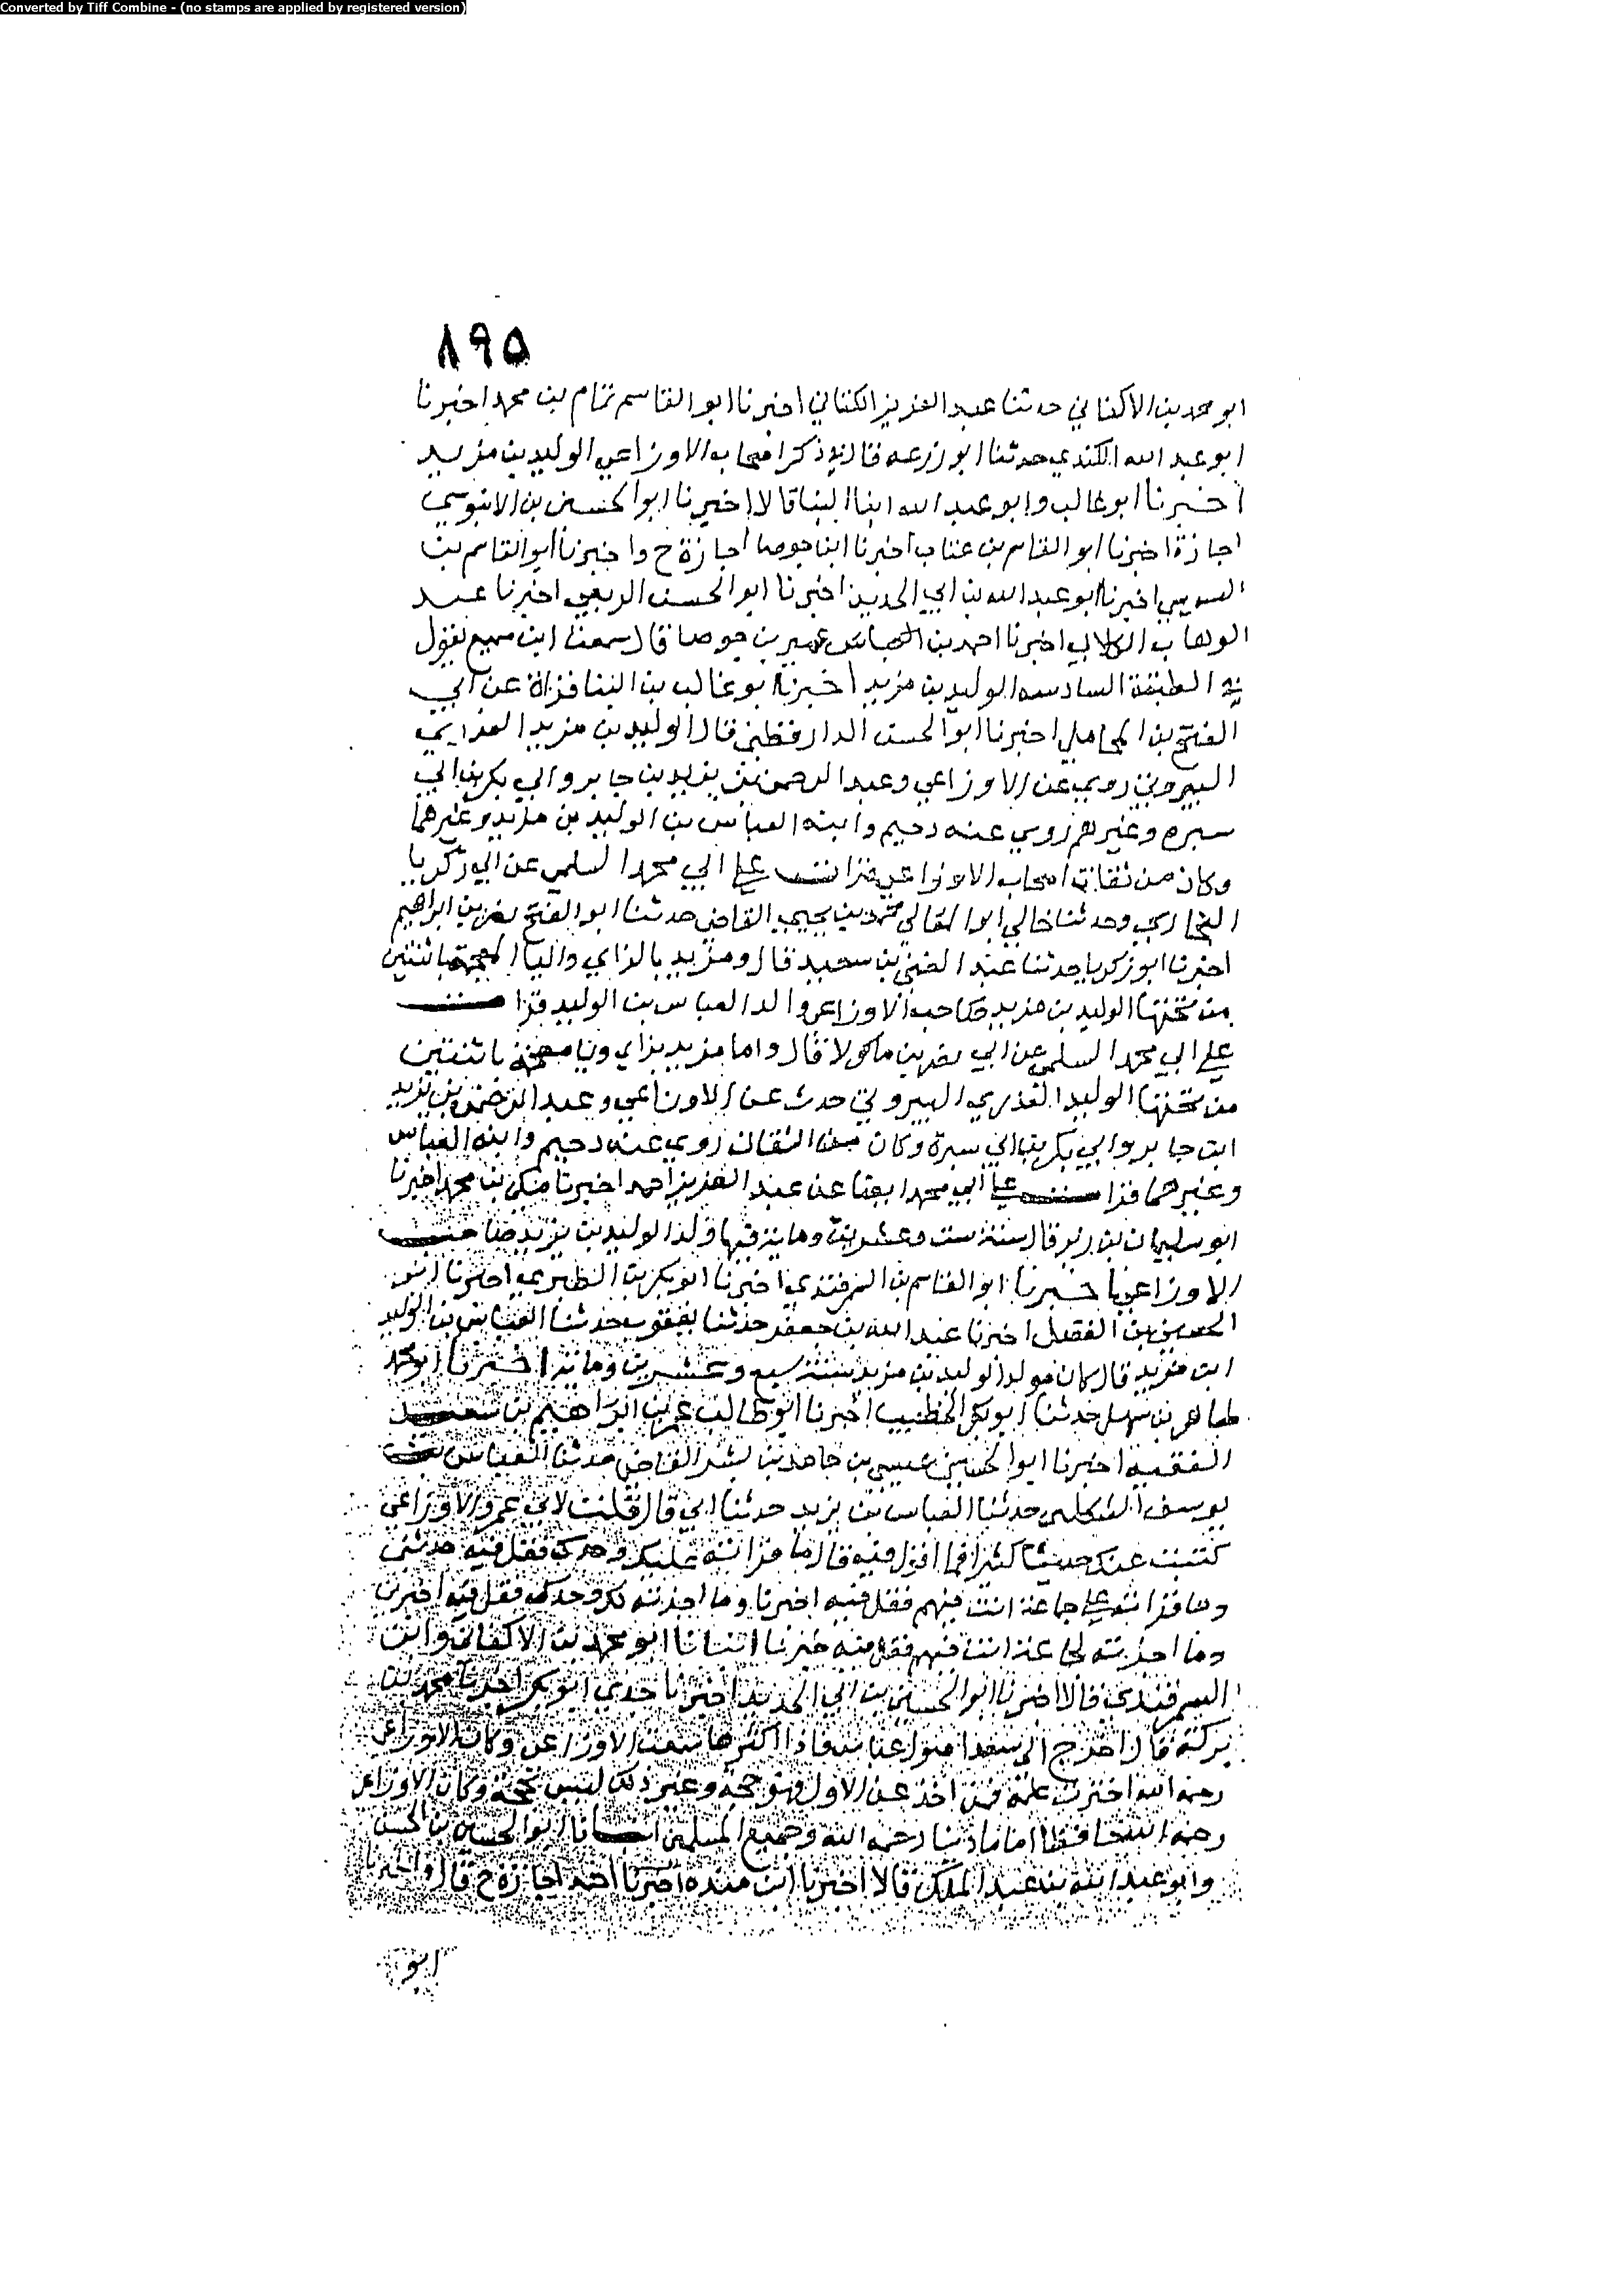 Converted by Tiff Combine - (no stamps are applied by registered version)
٨٩٥
ابو محمد بن الاكفاني حدثنا عبد العزيز الكتاني اخبرنا ابو القاسم تمام بن محمد اخبرنا
ابو عبد الله الكندي حدثنا ابو زرعه قال في ذكر اصحاب الاوزاعي الوليد بن مزيد
اخبرنا ابو غالب وابو عبد الله ابنا البنا قالا اخبرنا ابو الحسين بن الابنوسي
اجازة اخبرنا ابو القاسم بن عتاب اخبرنا ابن جوصا اجازة ح واخبرنا ابو القاسم بن
السوسي اخبرنا ابو عبد الله بن ابي الحديد اخبرنا ابو الحسن الربعي اخبرنا عبد
الوهاب الكلابي اخبرنا احمد بن عمير بن جوصا قال سمعت ابن سميع يقول
في الطبقة السادسه الوليد بن مزيد اخبرنا ابو غالب بن البنا قراة عن ابي
الفتح بن المحاملي اخبرنا ابو الحسن الدارقطني قال الوليد بن مزيد العذري
البيروتي روي عن الاوزاعي وعبد الرحمن بن يزيد بن جابر وابي بكر بن ابي
سبره وغيرهم روي عنه دحيم وابنه العباس بن الوليد بن مزيد وغيرهما
وكان من ثقات اصحاب الاوزاعي قرات علي ابي محمد السلمي عن ابي زكريا
البخاري وحدثنا خالي ابو المعالي محمد بن يحيي القاضي حدثنا ابو الفتح نصر بن ابراهيم
اخبرنا ابو زكريا حدثنا عبد الغني بن سعيد قال ومزيد بالزاي واليا المعجمة باثنتين
من تحتها الوليد بن مزيد صاحب الاوزاعي والد العباس بن الوليد قرات
علي ابي محمد السلمي عن ابي نصر بن ماكولا قال واما مزيد بزاي ويا معجمة باثنتين
من تحتها الوليد العذري البيروتي حدث عن الاوزاعي وعبد الرحمن بن يزيد
ابن جابر وابي بكر بن ابي سبرة وكان من الثقات روي عنه دحيم وابنه العباس
وغيرهما قرات علي ابي محمد ايضا عن عبد العزيز احمد اخبرنا مكي بن محمد اخبرنا
ابو سليمان بن زبر قال سنة ست وعشرين وماية فيها ولد الوليد بن يزيد صاحب
الاوزاعي اخبرنا ابو القاسم بن السمرقندي اخبرنا ابو بكر بن الطبري اخبرنا ابو
الحسين بن الفضل اخبرنا عبد الله بن جعفر حدثنا يعقوب حدثنا العباس بن الوليد
ابن مزيد قال كان مولد الوليد بن مزيد سنة سبع وعشرين وماية اخبرنا ابو محمد
طاهر بن سهل حدثنا ابو بكر الخطيب اخبرنا ابو طالب عمر بن ابراهيم بن سعيد
الفقيه اخبرنا ابو الحسين عيسي بن حامد بن بشر القاضي حدثنا العباس بن
يوسف الشكلي حدثنا العباس بن يزيد حدثنا ابي قال قلت لابي عمرو الاوزاعي
كتبت عنك حديثا كثيرا فما اقول فيه قال ما قراته عليك وحدك فقل فيه حدثني
وما قراته علي جماعة انت فيهم فقل فيه اخبرنا وما اجزته لك وحدك فقل فيه اخبرني
وما اجزته لجماعة انت فيهم فقل فيه خبرنا انبانا ابو محمد بن الاكفاني وابن
السمرقندي قالا اخبرنا ابو الحسين بن ابي الحديد اخبرنا جدي ابو بكر اخبرنا محمد بن
بركة قال اخرج الي سعد اكثرها سمعت الاوزاعي وكان الاوزاعي
رحمه الله فمن اخذ عن الاول فهو حجة وغير ذلك ليس بحجة وكان الاوزاعي
رحمه الله حافظا اماما دينا رحمه الله وجميع المسلمين انبانا ابو الحسين بن الحسن
وابو عبد الله بن عبد الملك قالا اخبرنا ابن منده اخبرنا احمد اجازة ح قال واخبرنا
ابو